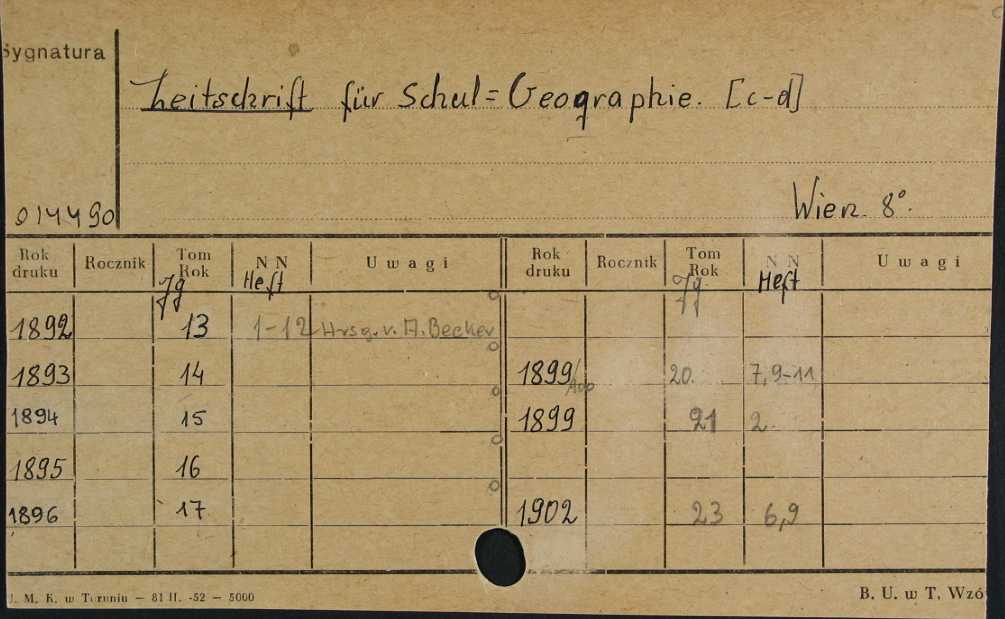 Sygnatura
Zeitschrift für Schul=Geographie. [c-d]
014490
Wien 8°.
Rok druku Rocznik Tom Rok N N U w a g i Rok druku Rocznik Tom Rok N N U w a g i
Jg Heft Jg. Heft
1892 13 1-12 Hrsg. v. A. Becker
1893 14 1899/ 20. 7,9-11
1894 15 1899 21 2
1895 16
1896 17 1902 23 6,9
U. M. K. w Toruniu — 81 II. -52 — 5000
B. U. w T. Wzó